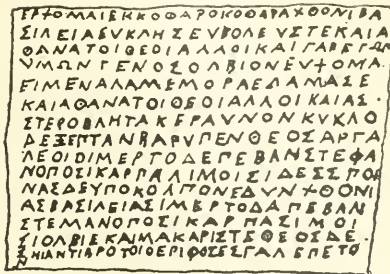 ΕΡΧΟΜΑΙΕΚΚΟΘΑΡΟΚΟΘΑΡΑΧΘΟΝΙΒΑ
ΣΙΛΕΙΑΕΥΚΛΗΣΕΥΒΟΛΕΥΣΤΕΚΑΙΑ
ΘΑΝΑΤΟΙΘΕΟΙΑΛΛΟΙΚΑΙΓΑΡΕΓΩΝ
ΥΜΩΝΓΕΝΟΣΟΛΒΙΟΝΕΥΧΟΜΑ
ΕΙΜΕΝΑΛΑΜΕΜΟΡΑΕΔΑΜΑΣΕ
ΚΑΙΑΘΑΝΑΤΟΙΘΕΟΙΑΛΛΟΙΚΑΙΑΣ
ΣΤΕΡΟΒΛΗΤΑΚΕΡΑΥΝΟΝΚΥΚΛΟ
ΔΕΞΕΠΤΑΝΒΑΡΥΠΕΝΘΕΟΣΑΡΓΑ
ΛΕΟΙΔΙΜΕΡΤΟΔΕΠΕΒΑΝΣΤΕΦΑ
ΝΟΠΟΣΙΚΑΡΠΑΛΙΜΟΙΣΙΔΕΣΣΠΟ
ΝΑΣΔΕΥΠΟΚΟΛΠΟΝΕΔΥΝΧΘΟΝΙ
ΑΣΒΑΣΙΛΕΙΑΣΙΜΕΡΤΟΔΑΠΕΒΑΝ
ΣΤΕΜΑΝΟΠΟΣΙΚΑΡΠΑΣΙΜΟΙ
ΣΙΟΛΒΙΕΚΑΙΜΑΚΑΡΙΣΤΕΘΕΟΣΔΕ
ΣΗΙΑΝΤΙΒΡΟΤΟΙΟΕΡΙΦΟΣΕΣΓΑΛΕΠΕΤΟ
Ν